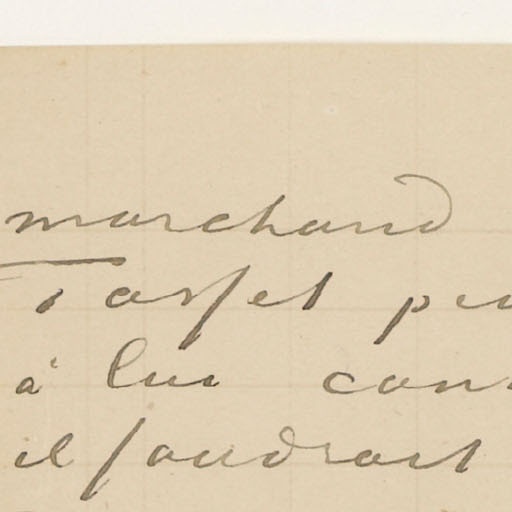 marchand
Tasset peu
à lui con
il faudrait